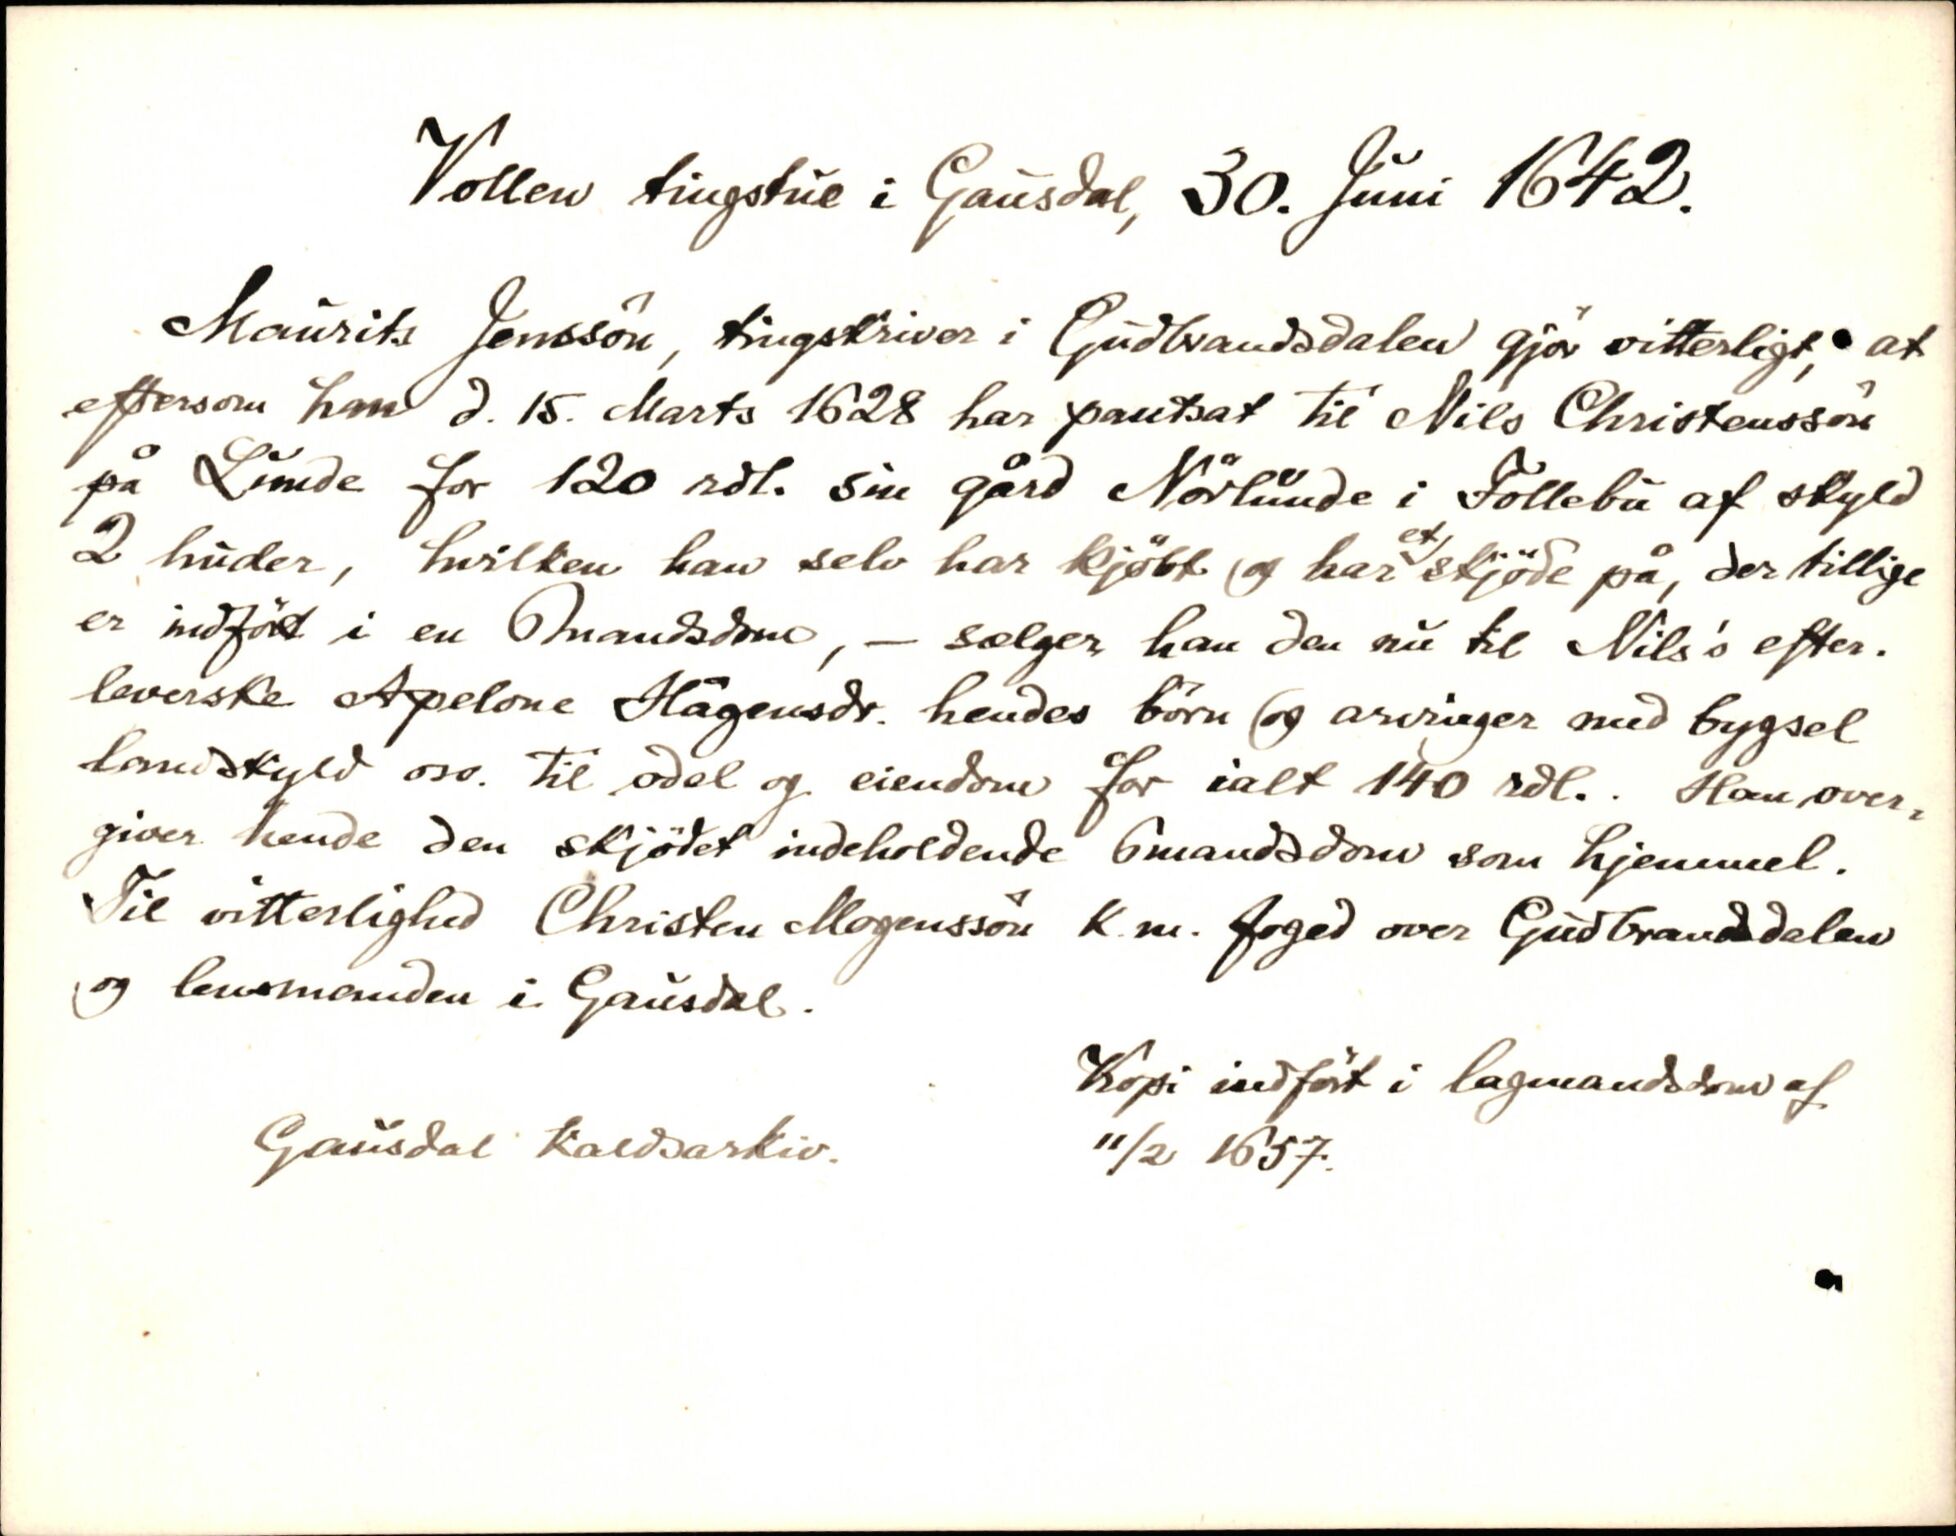 Vollen tingstue i Gausdal, 30. Juni 1642.
Maurits Jenssön, tingskriver i Gudbrandsdalen gjör vitterligt, at
eftersom han d. 15. Marts 1628 har pantsat til Nils Christenssön
på Lunde for 120 rdl. sin gård Nörlunde i Follebu af skyld
2 huder, hvilken han selv har kjöbt og har et skjöde på, der tillige
er indfört i en 6mandsdom, — sælger han den nu til Nils's efter-
leverske Apelone Hågensdr. hendes börn og arvinger med bygsel
landskyld osv. til odel og eiendom for ialt 140 rdl. . Han over-
giver hende den skjödet indeholdende 6mandsdom som hjemmel.
Til vitterlighed Christen Mogenssön K. m. foged over Gudbrandsdalen
og lensmanden i Gausdal.
Kopi indfört i lagmandsdom af
11/2 1657.
Gausdal kaldsarkiv.